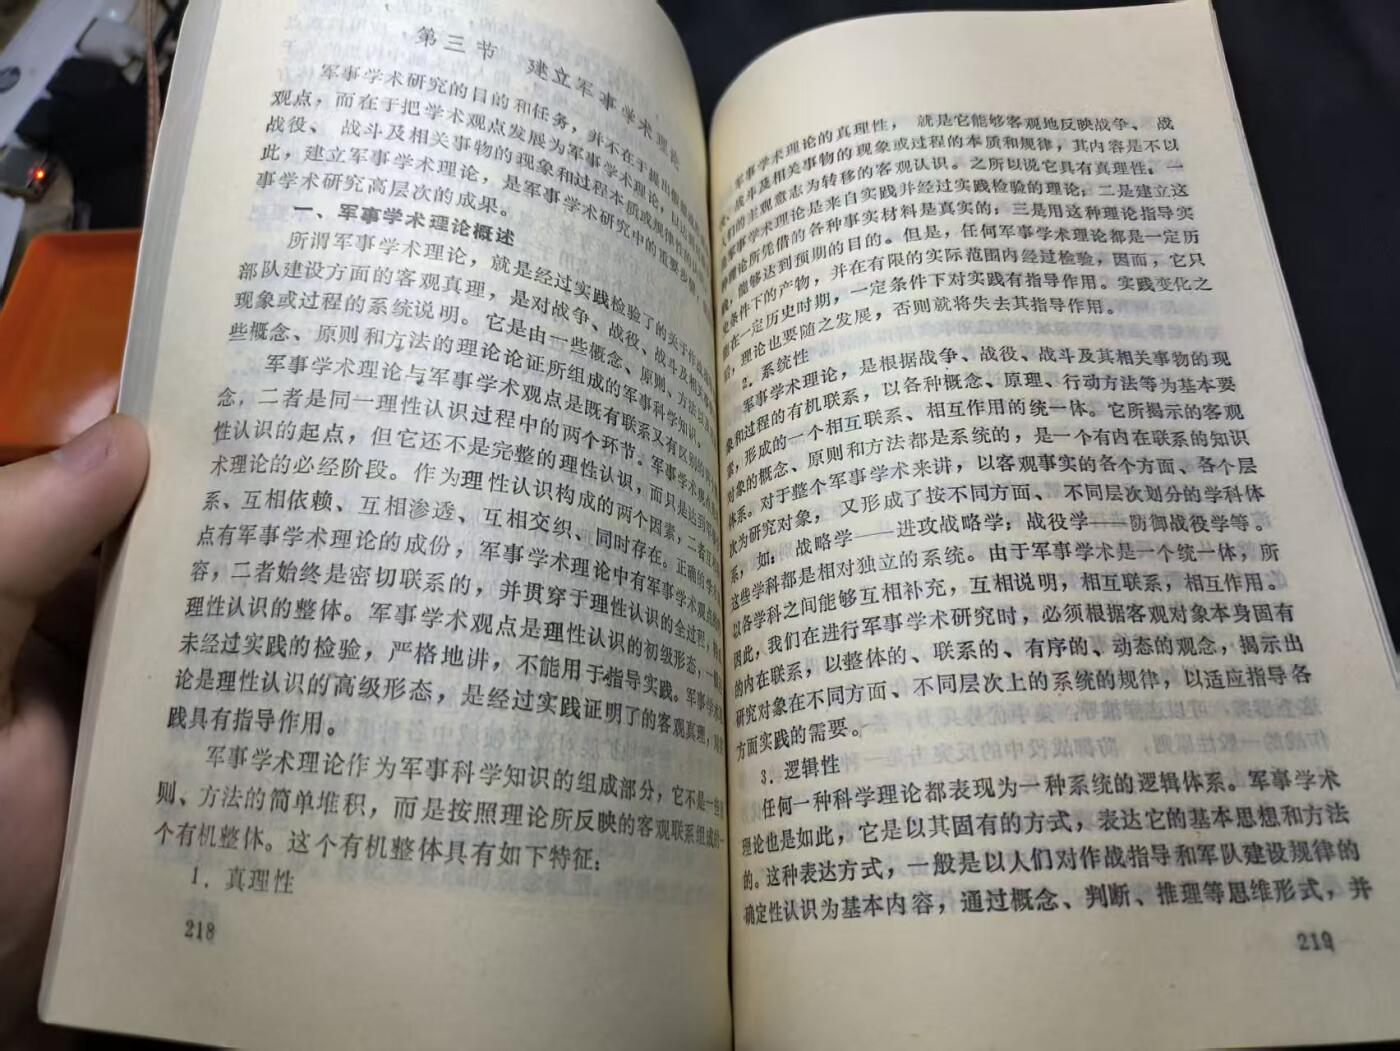 第三节 建立军事学术理论
军事学术研究的目的和任务，并不在于提出
观点，而在于把学术观点发展为军事学术理论，以达
战役、战斗及相关事物的现象和过程本质或规律性的
此，建立军事学术理论，是军事学术研究中的重要步
事学术研究高层次的成果。
一、军事学术理论概述
所谓军事学术理论，就是经过实践检验了的关于作战
部队建设方面的客观真理，是对战争、战役、战斗及相关
现象或过程的系统说明。它是由一些概念、原则、方法以及
些概念、原则和方法的理论论证所组成的军事科学知识。
军事学术理论与军事学术观点是既有联系又有区别的
念，二者是同一理性认识过程中的两个环节。军事学术观点
性认识的起点，但它还不是完整的理性认识，而只是达到军事
术理论的必经阶段。作为理性认识构成的两个因素，二者互相
系、互相依赖、互相渗透、互相交织、同时存在。正确的学术
点有军事学术理论的成份，军事学术理论中有军事学术观点的
容，二者始终是密切联系的，并贯穿于理性认识的全过程，构
理性认识的整体。军事学术观点是理性认识的初级形态，一般
未经过实践的检验，严格地讲，不能用于指导实践。军事学术
论是理性认识的高级形态，是经过实践证明了的客观真理，对实
践具有指导作用。
军事学术理论作为军事科学知识的组成部分，它不是一些
则、方法的简单堆积，而是按照理论所反映的客观联系组成的一
个有机整体。这个有机整体具有如下特征：
1．真理性
218
军事学术理论的真理性，就是它能够客观地反映战争、战
役、战斗及相关事物的现象或过程的本质和规律，其内容是不以
人们的主观意志为转移的客观认识。之所以说它具有真理性：一
是军事学术理论是来自实践并经过实践检验的理论；二是建立这
种理论所凭借的各种事实材料是真实的；三是用这种理论指导实
践，能够达到预期的目的。但是，任何军事学术理论都是一定历
史条件下的产物，并在有限的实际范围内经过检验，因而，它只
能在一定历史时期，一定条件下对实践有指导作用。实践变化之
后，理论也要随之发展，否则就将失去其指导作用。
2．系统性
军事学术理论，是根据战争、战役、战斗及其相关事物的现
象和过程的有机联系，以各种概念、原理、行动方法等为基本要
素，形成的一个相互联系、相互作用的统一体。它所揭示的客观
对象的概念、原则和方法都是系统的，是一个有内在联系的知识
体系。对于整个军事学术来讲，以客观事实的各个方面、各个层
次为研究对象，又形成了按不同方面、不同层次划分的学科体
系，如：战略学——进攻战略学；战役学——防御战役学等。
这些学科都是相对独立的系统。由于军事学术是一个统一体，所
以各学科之间能够互相补充，互相说明，相互联系，相互作用。
因此，我们在进行军事学术研究时，必须根据客观对象本身固有
的内在联系，以整体的、联系的、有序的、动态的观念，揭示出
研究对象在不同方面、不同层次上的系统的规律，以适应指导各
方面实践的需要。
3．逻辑性
任何一种科学理论都表现为一种系统的逻辑体系。军事学术
理论也是如此，它是以其固有的方式，表达它的基本思想和方法
的。这种表达方式，一般是以人们对作战指导和军队建设规律的
确定性认识为基本内容，通过概念、判断、推理等思维形式，并
219